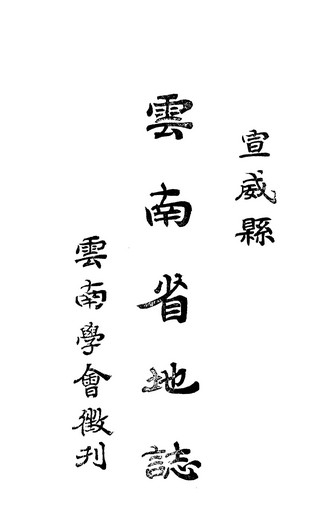 宣威縣
雲南省地誌
雲南學會徵刊